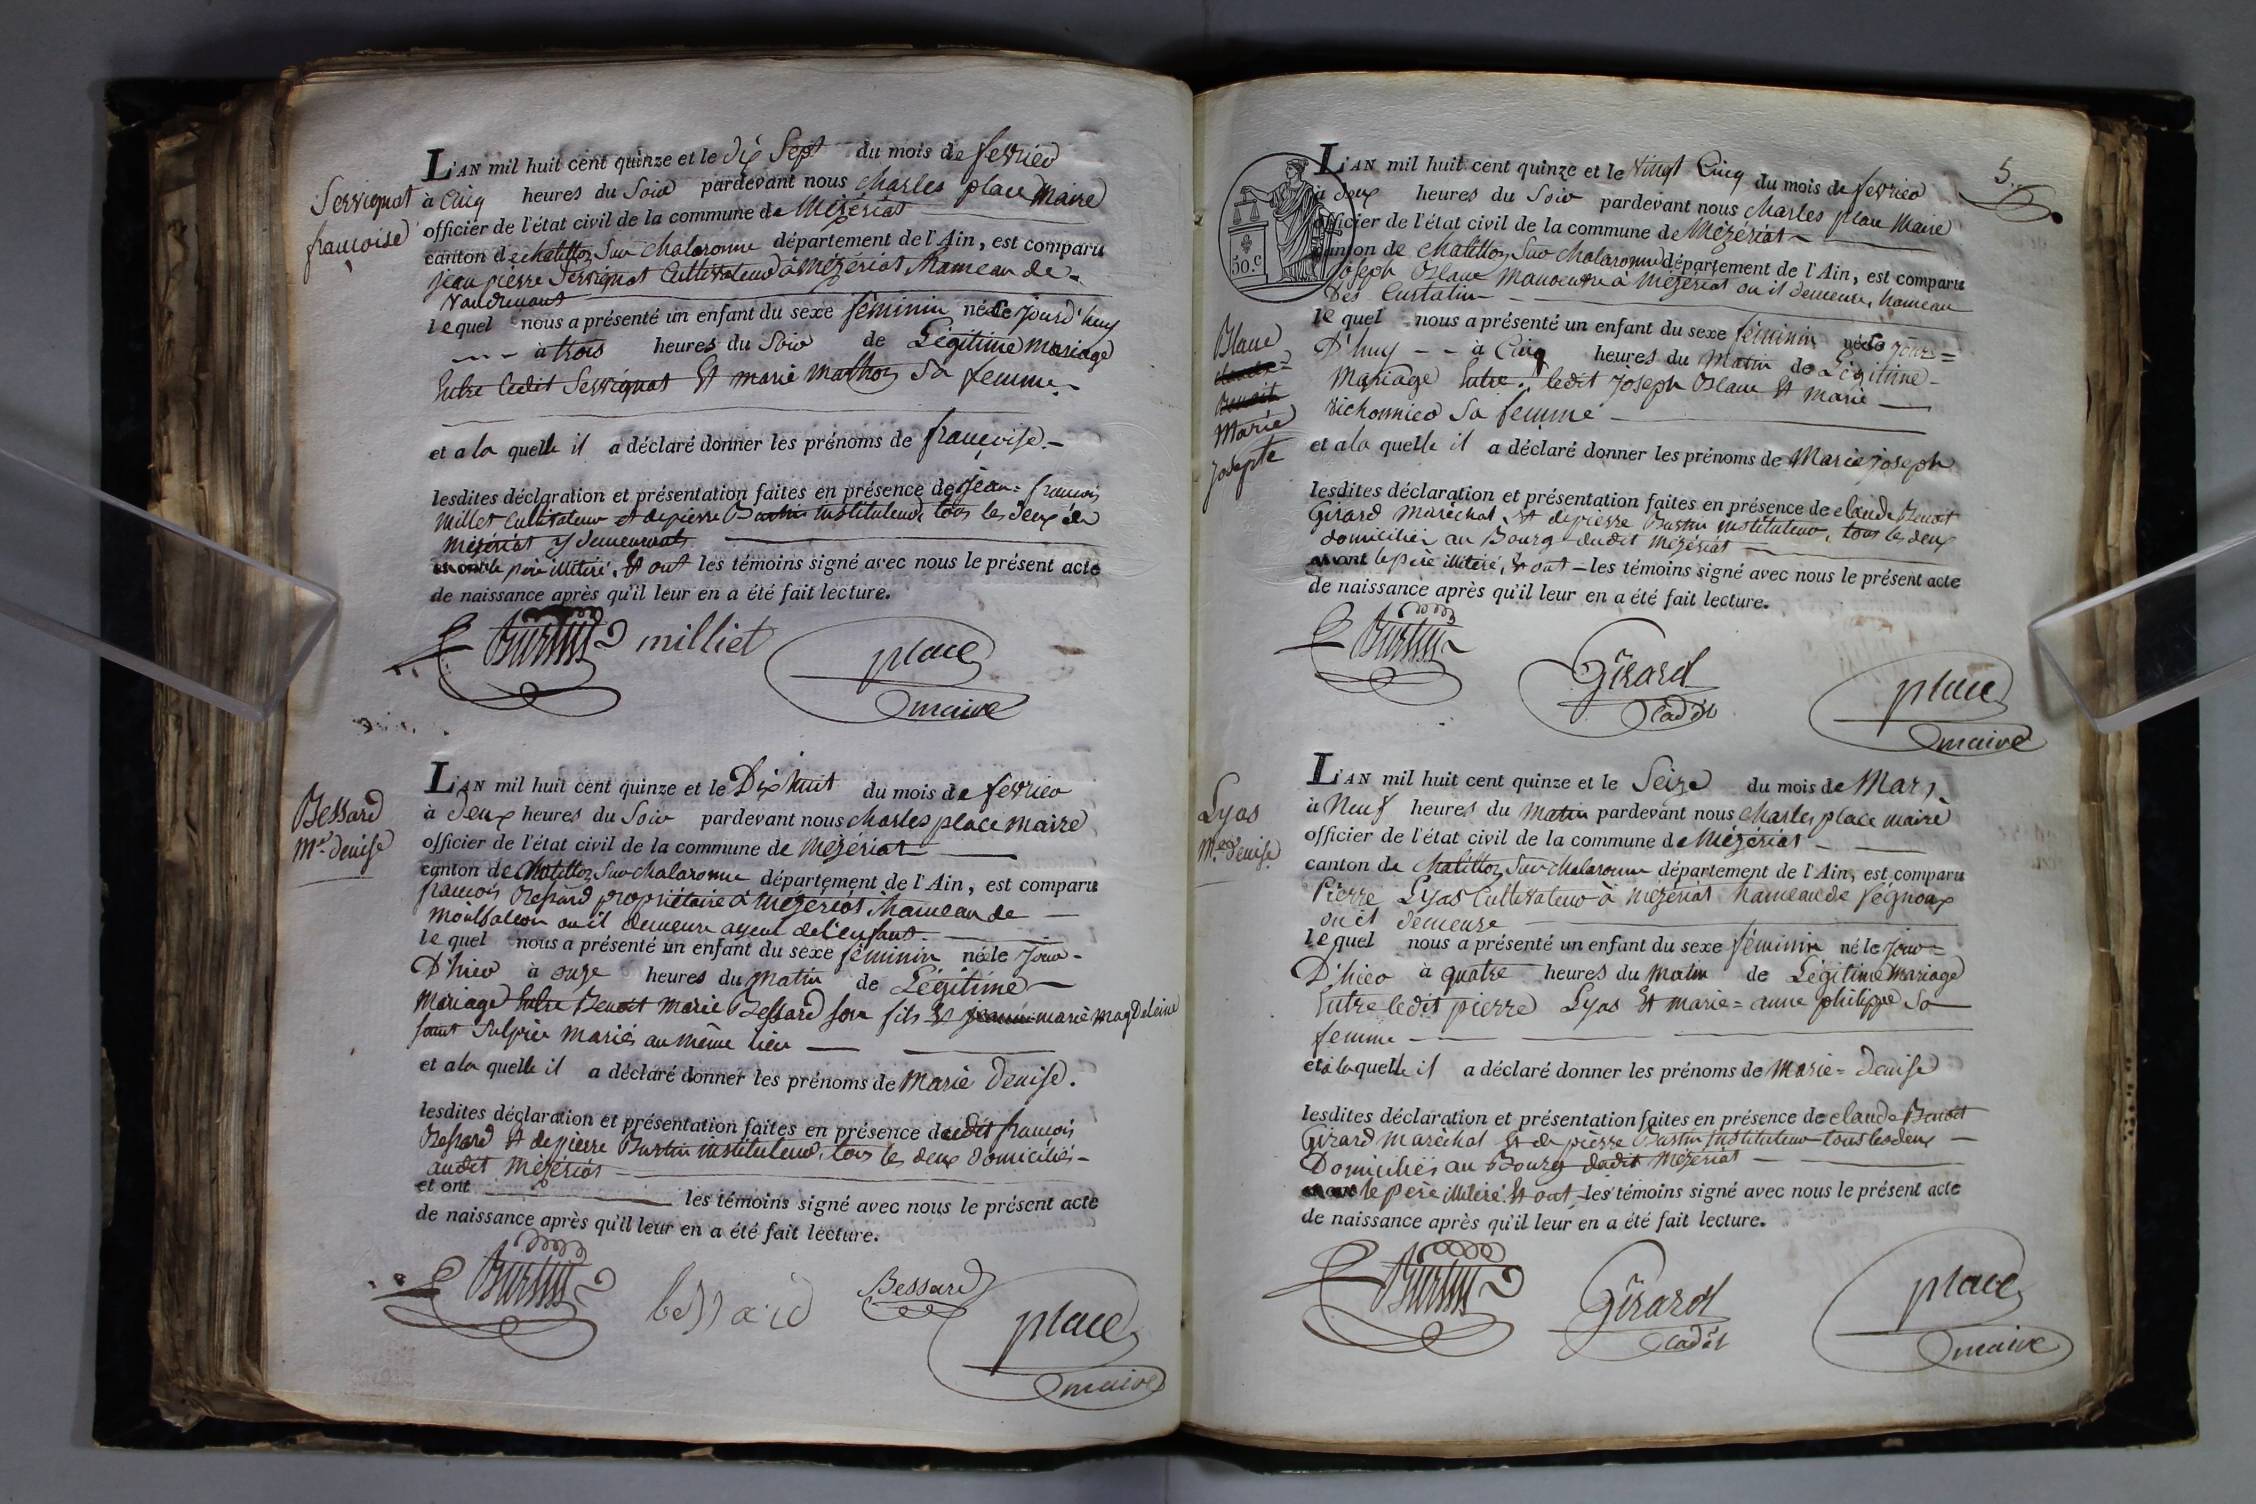 Servignat
françoise
L'AN mil huit cent quinze et le dix Sept du mois de fevrier
à Cinq heures du Soir pardevant nous charles place Maire
officier de l'état civil de la commune de Mézériat
canton de chatillon Sur chalaronne département de l'Ain, est comparu
jean pierre Servignat Cultivateur à Mézériat, hameau de
le quel nous a présenté un enfant du sexe féminin né le jourd'huy
à trois heures du Soir de Légitime mariage
Entre ledit Servignat Et marie mathon Sa femme
et a la quelle il a déclaré donner les prénoms de françoise
lesdites déclaration et présentation faites en présence de jean françois
millet Cultivateur et de pierre Burtin instituteur, tous les deux de
mézériat y demeurants
le père illitéré, Et ont les témoins signé avec nous le présent acte
de naissance après qu'il leur en a été fait lecture.
Burtin milliet place
maire
Bessard
Mie denise
L'AN mil huit cent quinze et le Dix huit du mois de fevrier
à deux heures du Soir pardevant nous charles place maire
officier de l'état civil de la commune de Mézériat
canton de Chatillon Sur chalaronne département de l'Ain, est comparu
françois Bessard propriétaire à Mézériat, hameau de
Montfalcon ou il demeure ayeul de l'enfant
le quel nous a présenté un enfant du sexe féminin né le jour
D'hier à onze heures du matin de Légitime
Mariage Entre Benoit marie Bessard son fils Et marie magdeleine
Sulpice mariés au même lieu
et a la quelle il a déclaré donner les prénoms de Marie Denise.
lesdites déclaration et présentation faites en présence dudit françois
Bessard Et de pierre Burtin instituteur, tous les deux domiciliés
audit Mézériat
et ont les témoins signé avec nous le présent acte
de naissance après qu'il leur en a été fait lecture.
Burtin bessard Bessard place
maire
5.
50.c
Blanc
Marie
Josepte
L'AN mil huit cent quinze et le vingt Cinq du mois de fevrier
à deux heures du Soir pardevant nous charles place Maire
officier de l'état civil de la commune de Mézériat
canton de chatillon Sur chalaronne département de l'Ain, est comparu
joseph Blanc Manoeuvre à Mézériat ou il demeure, hameau
Des
le quel nous a présenté un enfant du sexe féminin né le jour=
D'huy à Cinq heures du Matin de Légitime
Mariage Entre ledit joseph Blanc Et marie
Sa femme
et a la quelle il a déclaré donner les prénoms de Marie joseph
lesdites déclaration et présentation faites en présence de claude Benoit
Girard Maréchal Et de pierre Burtin instituteur, tous les deux
domiciliés au Bourg dudit Mézériat
le père illitéré, Et ont les témoins signé avec nous le présent acte
de naissance après qu'il leur en a été fait lecture.
Burtin Girard place
Cadet maire
Lyas
Mie denise
L'AN mil huit cent quinze et le Seize du mois de Mars
à Neuf heures du Matin pardevant nous charles place maire
officier de l'état civil de la commune de Mézériat
canton de Chatillon Sur chalaronne département de l'Ain, est comparu
Pierre Lyas Cultivateur à Mézériat hameau de
ou il demeure
le quel nous a présenté un enfant du sexe féminin né le jour=
D'hier à quatre heures du Matin de Légitime Mariage
Entre ledit pierre Lyas Et marie= anne philippe Sa
femme
et a la quelle il a déclaré donner les prénoms de Marie= Denise
lesdites déclaration et présentation faites en présence de claude Benoit
Girard Maréchal Et de pierre Burtin instituteur tous les deux
Domiciliés au Bourg dudit Mézériat
le père illitéré Et ont les témoins signé avec nous le présent acte
de naissance après qu'il leur en a été fait lecture.
Burtin Girard place
Cadet maire